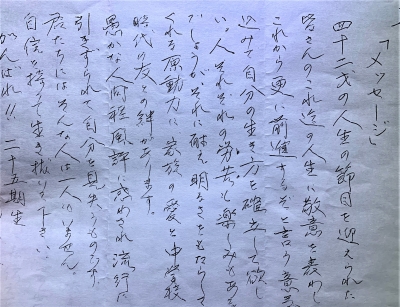 「メッセージ」
四十二才の人生の節目を迎えられた
皆さんのこれ迄の人生に敬意を表わ
これから更に前進するぞと言う意
込みで自分の生き方を確立して欲
い。人それぞれの労苦も楽しみもある
でしょうがそれに耐え明るさをもたらして
くれる原動力に家族の愛と中学校
時代の友との絆があります。
愚かな人間程風評に惑わされ流行に
引きずられて自分を見失うものです。
君たちにはそんな人は一人もいません。
自信を持って生き抜いて下さい。
がんばれ!! 二十五期生